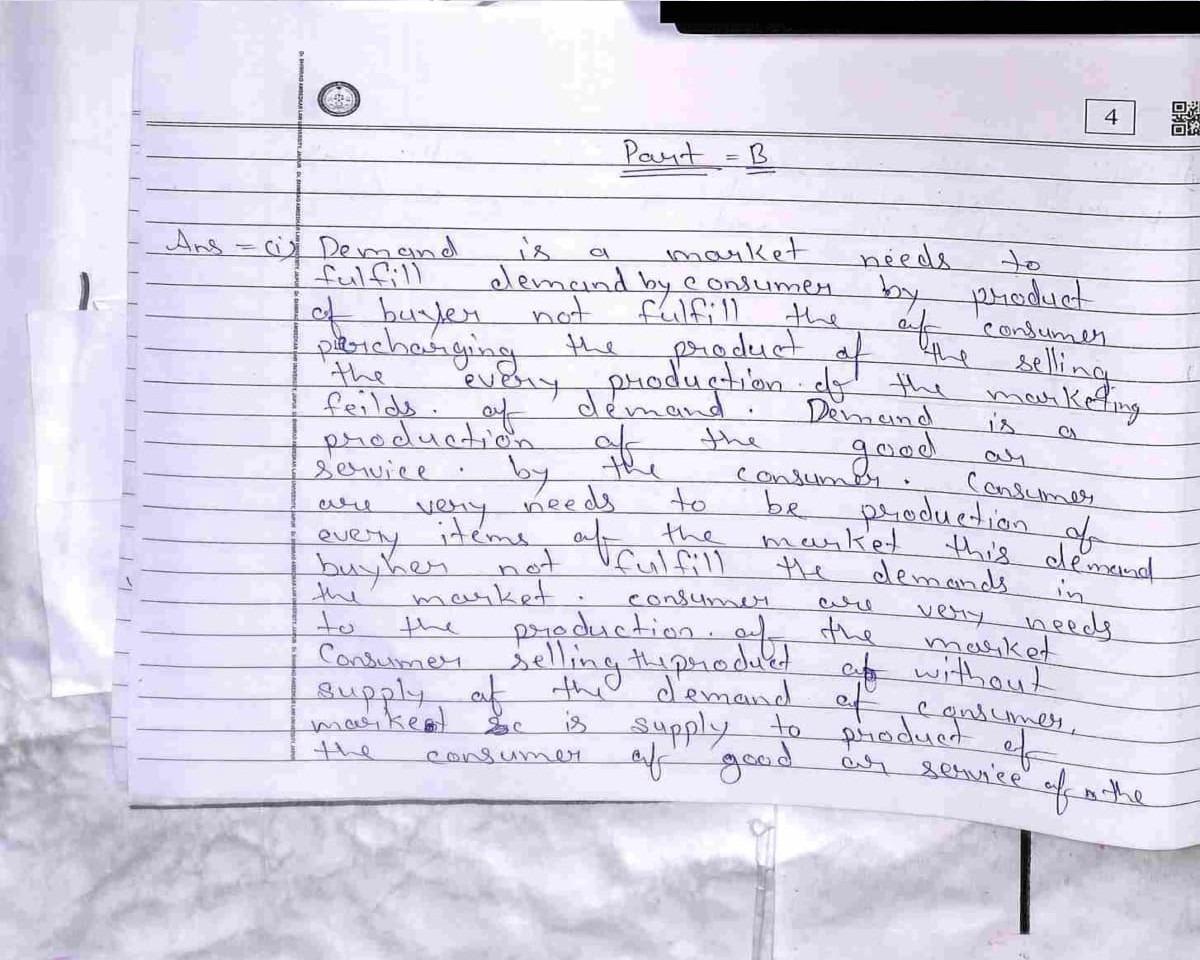 4
Part = B
Ans = (i) Demand is a market needs to
fulfill demand by consumer by product
of buyer not fulfill the of consumer
percharging the product of the selling
the every production. of the marketing
feilds. of demand. Demand is a
production of the good or
service. by the consumer. Consumer
are very needs to be production of
every items of the market this demand
buyher not fulfill the demands in
the market. consumer are very needs
to the production. of the market
Consumer selling the product of without
supply of the demand of consumer,
market is supply to product of
the consumer of good or service of the